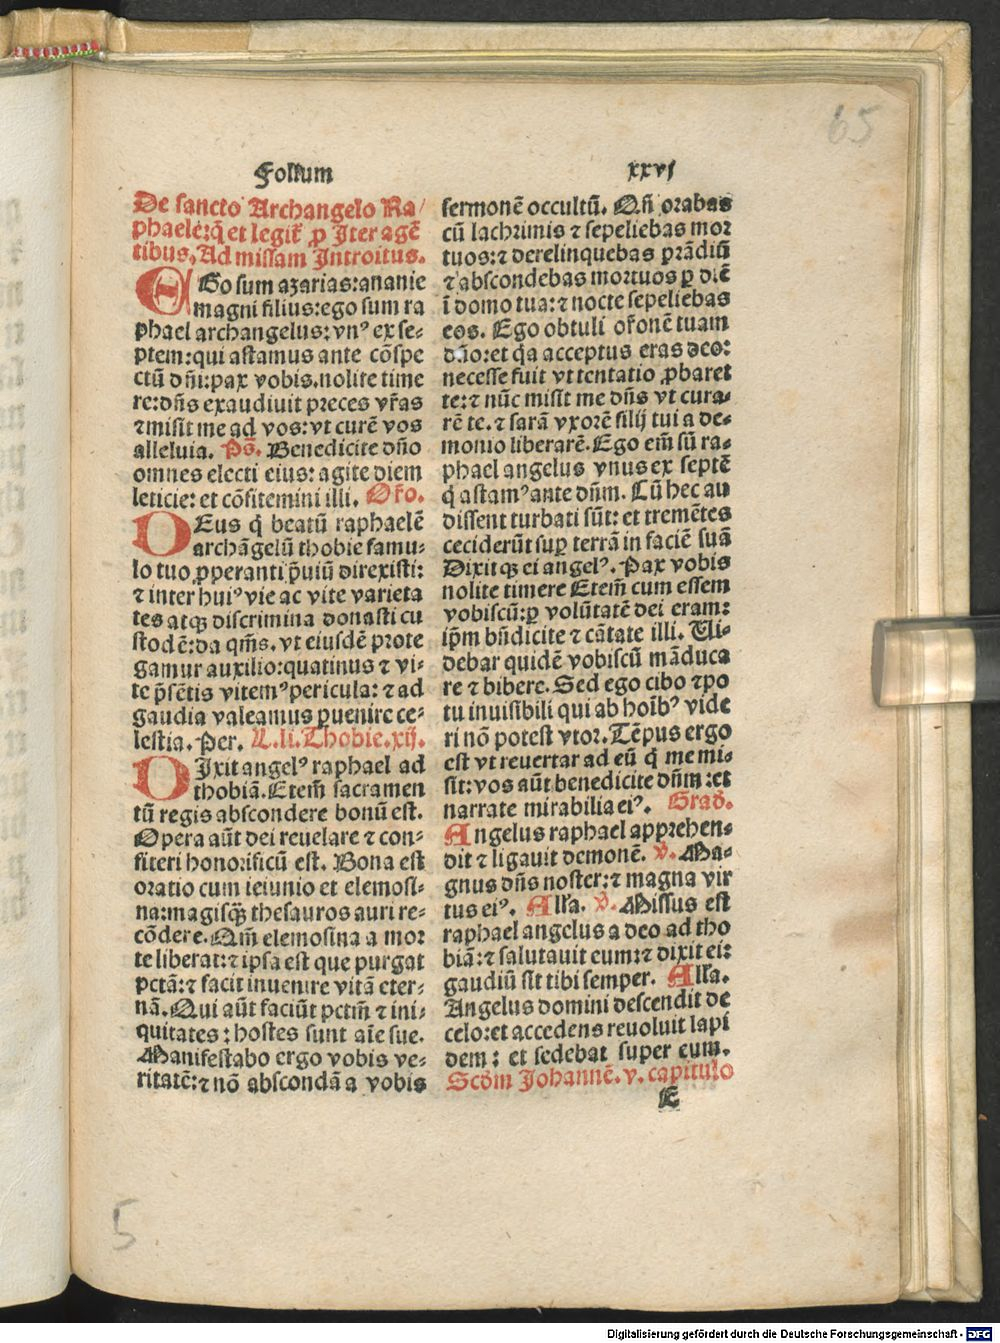 65
Folium xxvj
De sancto Archangelo Ra/
phaele: q̃ et legit̃ ꝓ Iter agẽ
tibus. Ad missam Introitus.
EGo sum azarias: ananie
magni filius: ego sum ra
phael archangelus: vnꝰ ex se-
ptem: qui astamus ante cõspe
ctũ dñi: pax vobis. nolite time
re: dñs exaudiuit preces vr̃as
⁊ misit me ad vos: vt curẽ vos
alleluia. Ps̃. Benedicite dño
omnes electi eius: agite diem
leticie: et cõfitemini illi. Or̃o.
DEus q̇ beatũ raphaelẽ
archãgelũ thobie famu-
lo tuo ꝓperanti p̃uiũ direxisti:
⁊ inter huiꝰ vie ac vite varieta
tes atqꝫ discrimina donasti cu
stodẽ: da qm̃s. vt eiusdẽ prote
gamur auxilio: quatinus ⁊ vi-
te p̃sẽtis vitemꝰ pericula: ⁊ ad
gaudia valeamus ꝑuenire ce-
lestia. Per. L. li. Thobie. xij.
DIxit angelꝰ raphael ad
thobiã. Etem̃ sacramen
tũ regis abscondere bonũ est.
Opera aũt dei reuelare ⁊ con-
fiteri honorificũ est. Bona est
oratio cum ieiunio et elemosi-
na: magisqꝫ̃ thesauros auri re-
cõdere. Qm̃ elemosina a mor
te liberat: ⁊ ipsa est que purgat
pctã: ⁊ facit inuenire vitã eter-
nã. Qui aũt faciũt pctm̃ ⁊ ini-
quitates: hostes sunt aĩe sue.
Manifestabo ergo vobis ve-
ritatẽ: ⁊ nõ abscondã a vobis
sermonẽ occultũ. Qñ orabas
cũ lachrimis ⁊ sepeliebas mor
tuos: ⁊ derelinquebas prãdiũ
⁊ abscondebas mortuos ꝑ diẽ
ĩ domo tua: ⁊ nocte sepeliebas
eos. Ego obtuli or̃onẽ tuam
dño: et q̇a acceptus eras deo:
necesse fuit vt tentatio ꝓbaret
te: ⁊ nũc misit me dñs vt cura-
rẽ te. ⁊ sarã vxorẽ filij tui a de-
monio liberarẽ. Ego em̃ sũ ra-
phael angelus vnus ex septẽ
q̇ astamꝰ ante dñm. Cũ hec au
dissent turbati sũt: et tremẽtes
ceciderũt suꝑ terrã in faciẽ suã
Dixitqꝫ ei angelꝰ. Pax vobis
nolite timere Etem̃ cum essem
vobiscũ: ꝑ volũtatẽ dei eram:
ip̃m bñdicite ⁊ cãtate illi. Vi-
debar quidẽ vobiscũ mãduca
re ⁊ bibere. Sed ego cibo ⁊ po
tu inuisibili qui ab hoĩbꝰ vide
ri nõ potest vtor. Tẽpus ergo
est vt reuertar ad eũ q̇ me mi-
sit: vos aũt benedicite dñm: et
narrate mirabilia eiꝰ. Grad̃.
Angelus raphael apprehen-
dit ⁊ ligauit demonẽ. v̄. Ma-
gnus dñs noster: ⁊ magna vir
tus eiꝰ. All'a. v̄. Missus est
raphael angelus a deo ad tho
biã: ⁊ salutauit eum: ⁊ dixit ei:
gaudiũ sit tibi semper. All'a.
Angelus domini descendit de
celo: et accedens reuoluit lapi
dem: et sedebat super eum.
Scd̃m Johannẽ. v. capitulo
E
5
Digitalisierung gefördert durch die Deutsche Forschungsgemeinschaft - DFG